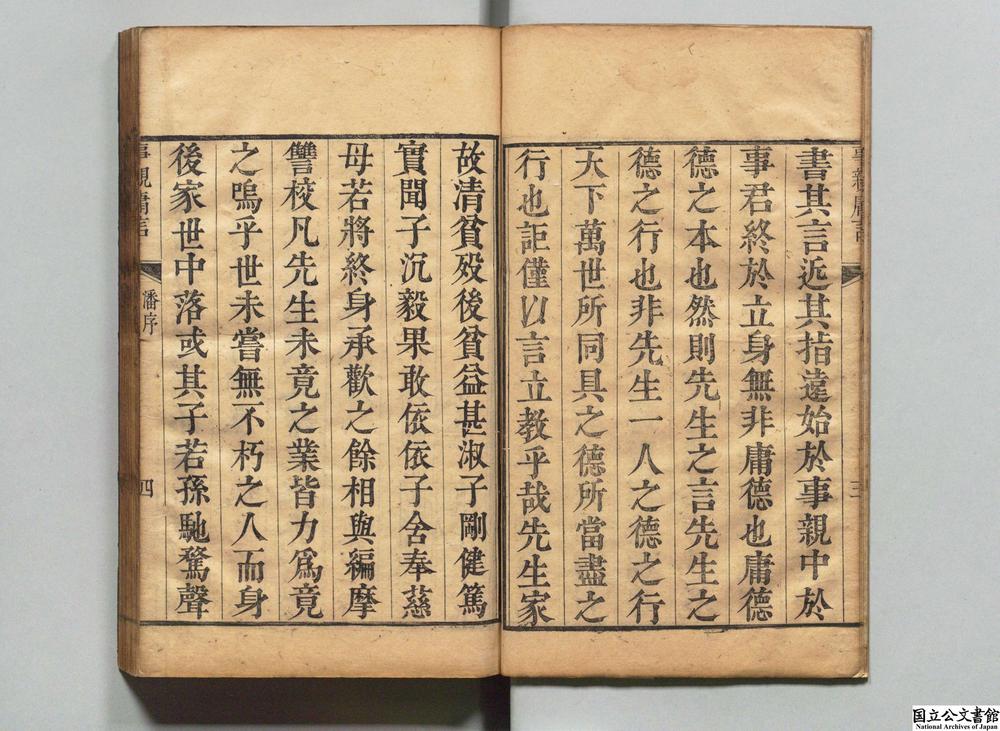 書其言近其指遠始於事親中於
事君終於立身無非庸德也庸德
德之本也然則先生之言先生之
德之行也非先生一人之德之行
天下萬世所同具之德所當盡之
行也詎僅以言立教乎哉先生家
故清貧歿後貧益甚淑子剛健篤
實聞子沉毅果敢依依子舍奉慈
母若將終身承歡之餘相與編摩
讐校凡先生未竟之業皆力爲竟
之嗚乎世未嘗無不朽之人而身
後家世中落或其子若孫馳騖聲
事親庸言
潘序
四
国立公文書館
National Archives of Japan